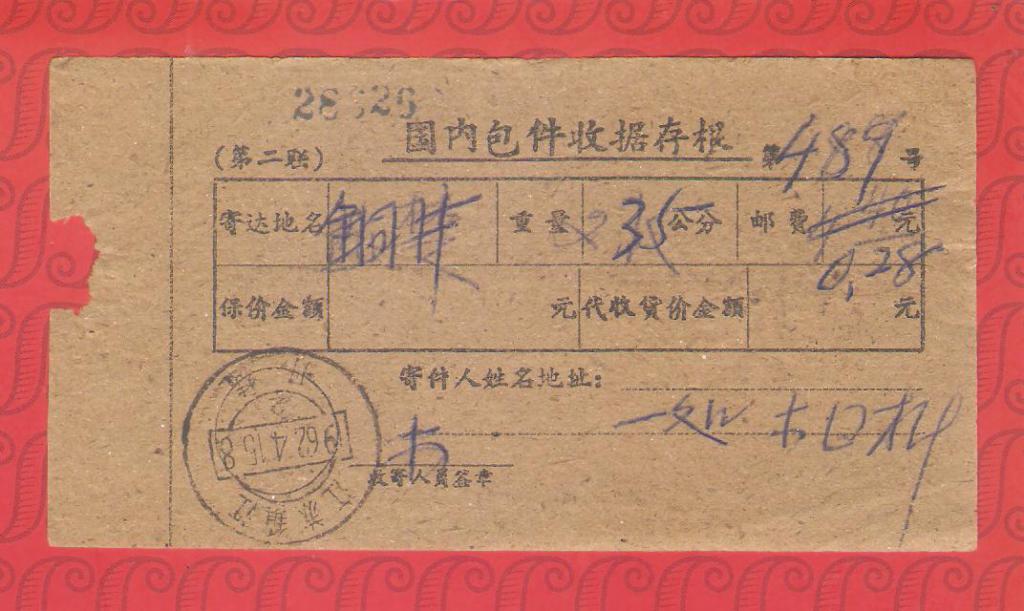 28626
国内包件收据存根
(第二联) 第489号
寄达地名 重量 235 公分 邮费 元
0.28
保价金额 元 代收货价金额 元
寄件人姓名地址:
收寄人员签章
1962.4.15.8
江苏镇江